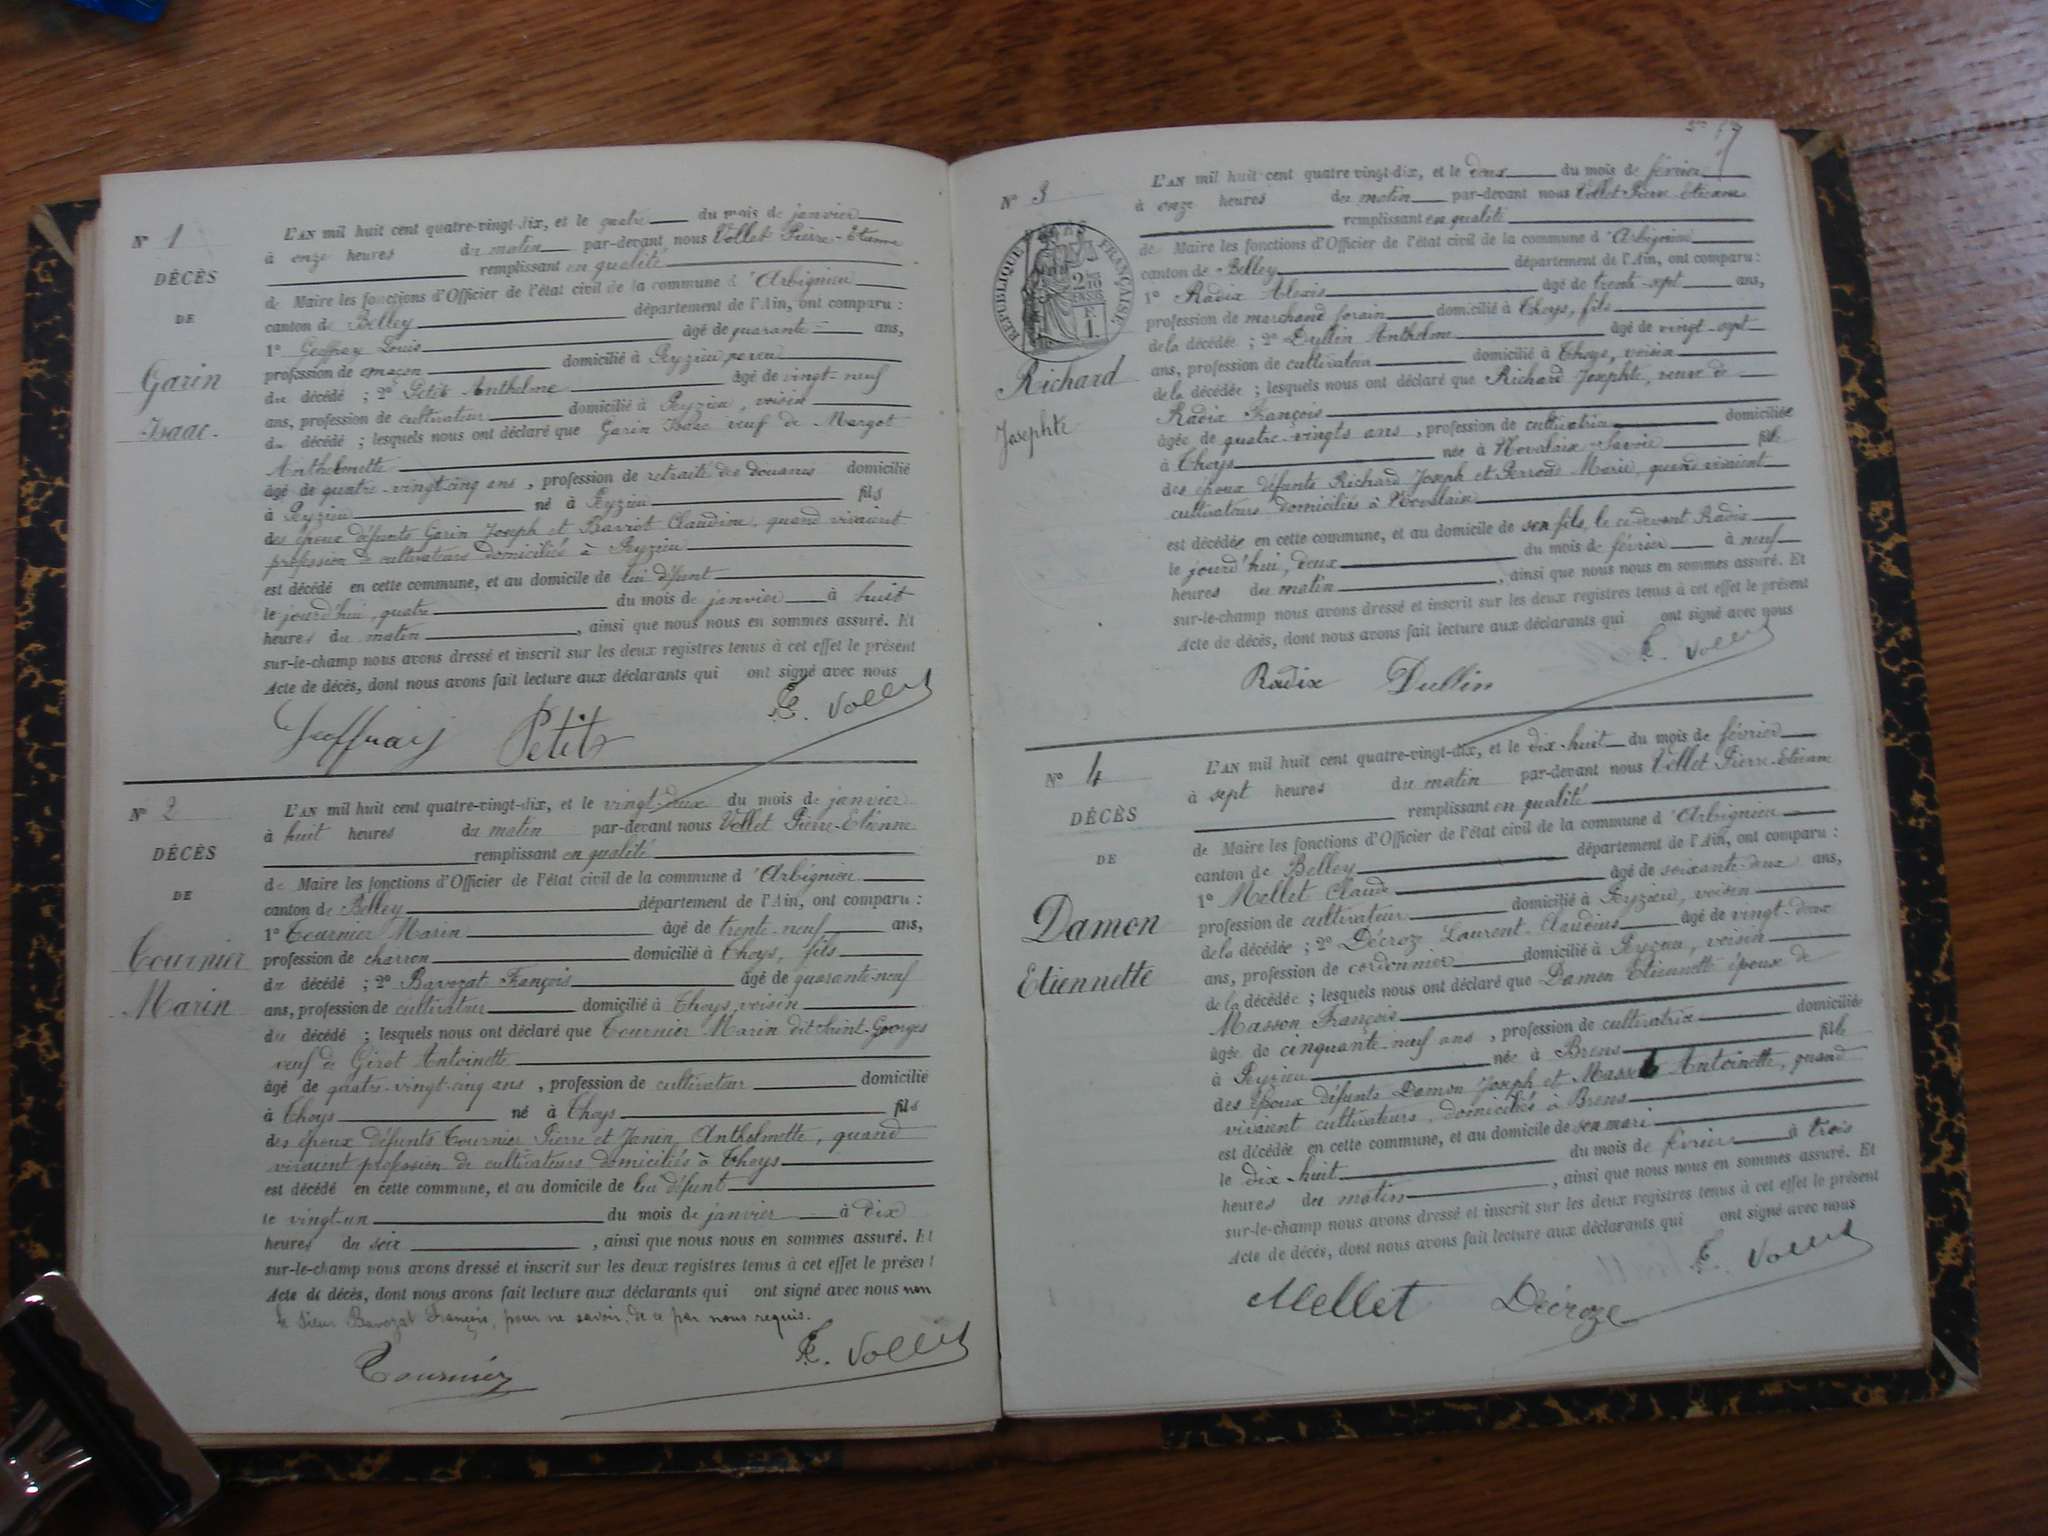 N° 1
DÉCÈS
DE
Garin
Isaac.
L'AN mil huit cent quatre-vingt-dix, et le quatre du mois de janvier
à onze heures du matin par-devant nous Vollet Pierre-Etienne
remplissant en qualité
de Maire les fonctions d'Officier de l'état civil de la commune d'Arbignieu
canton de Belley département de l'Ain, ont comparu :
1° Geoffray Louis âgé de quarante ans,
profession de maçon domicilié à Peyzieu, neveu
du décédé ; 2° Petit Anthelme âgé de vingt-neuf
ans, profession de cultivateur domicilié à Peyzieu, voisin
du décédé ; lesquels nous ont déclaré que Garin Isaac veuf de Margot
Anthelmette
âgé de quatre-vingt-cinq ans, profession de retraité des douanes domicilié
à Peyzieu né à Peyzieu fils
des époux défunts Garin Joseph et Barriot Claudine, quand vivaient
profession de cultivateurs domiciliés à Peyzieu
est décédé en cette commune, et au domicile de lui défunt
le jourd'hui, quatre du mois de janvier à huit
heures du matin, ainsi que nous nous en sommes assuré. Et
sur-le-champ nous avons dressé et inscrit sur les deux registres tenus à cet effet le présent
Acte de décès, dont nous avons fait lecture aux déclarants qui ont signé avec nous
Geoffray Petit E. Vollet
N° 2
DÉCÈS
DE
Tournier
Marin
L'AN mil huit cent quatre-vingt-dix, et le vingt-deux du mois de janvier
à huit heures du matin par-devant nous Vollet Pierre-Etienne
remplissant en qualité
de Maire les fonctions d'Officier de l'état civil de la commune d'Arbignieu
canton de Belley département de l'Ain, ont comparu :
1° Tournier Marin âgé de trente-neuf ans,
profession de charron domicilié à Thoys, fils
du décédé ; 2° Bavozat François âgé de quarante-neuf
ans, profession de cultivateur domicilié à Thoys, voisin
du décédé ; lesquels nous ont déclaré que Tournier Marin dit Saint-Georges
veuf de Girot Antoinette
âgé de quatre-vingt-cinq ans, profession de cultivateur domicilié
à Thoys né à Thoys fils
des époux défunts Tournier Pierre et Janin, Anthelmette, quand
vivaient profession de cultivateurs domiciliés à Thoys
est décédé en cette commune, et au domicile de lui défunt
le vingt-un du mois de janvier à dix
heures du soir, ainsi que nous nous en sommes assuré. Et
sur-le-champ nous avons dressé et inscrit sur les deux registres tenus à cet effet le présent
Acte de décès, dont nous avons fait lecture aux déclarants qui ont signé avec nous non
le sieur Bavozat François, pour ne savoir, de ce par nous requis.
Tournier E. Vollet
N° 3
RÉPUBLIQUE FRANÇAISE
Richard
Josephte
L'AN mil huit cent quatre-vingt-dix, et le deux du mois de février
à onze heures du matin par-devant nous Vollet Pierre-Etienne
remplissant en qualité
de Maire les fonctions d'Officier de l'état civil de la commune d'Arbignieu
canton de Belley département de l'Ain, ont comparu :
1° Radix Alexis âgé de trente-sept ans,
profession de marchand forain domicilié à Thoys, fils
de la décédée ; 2° Dullin Anthelme âgé de vingt-sept
ans, profession de cultivateur domicilié à Thoys, voisin
de la décédée ; lesquels nous ont déclaré que Richard Josephte, veuve de
Radix François
âgée de quatre-vingts ans, profession de cultivatrice domiciliée
à Thoys née à Novalaix-Savoie fille
des époux défunts Richard Joseph et Perroud Marie, quand vivaient
cultivateurs domiciliés à Novalaix
est décédée en cette commune, et au domicile de son fils, le ci-devant Radix
le jourd'hui, deux du mois de février à neuf
heures du matin, ainsi que nous nous en sommes assuré. Et
sur-le-champ nous avons dressé et inscrit sur les deux registres tenus à cet effet le présent
Acte de décès, dont nous avons fait lecture aux déclarants qui ont signé avec nous
Radix Dullin E. Vollet
N° 4
DÉCÈS
DE
Damon
Etiennette
L'AN mil huit cent quatre-vingt-dix, et le dix-huit du mois de février
à sept heures du matin par-devant nous Vollet Pierre-Etienne
remplissant en qualité
de Maire les fonctions d'Officier de l'état civil de la commune d'Arbignieu
canton de Belley département de l'Ain, ont comparu :
1° Mellet Claude âgé de soixante-deux ans,
profession de cultivateur domicilié à Peyzieu, voisin
de la décédée ; 2° Décroz Laurent-Claudius âgé de vingt-deux
ans, profession de cordonnier domicilié à Peyzieu, voisin
de la décédée ; lesquels nous ont déclaré que Damon Etiennette épouse de
Masson François
âgée de cinquante-neuf ans, profession de cultivatrice domiciliée
à Peyzieu née à Brens fille
des époux défunts Damon Joseph et Antoinette, quand
vivaient cultivateurs, domiciliés à Brens
est décédée en cette commune, et au domicile de son mari
le dix-huit du mois de février à trois
heures du matin, ainsi que nous nous en sommes assuré. Et
sur-le-champ nous avons dressé et inscrit sur les deux registres tenus à cet effet le présent
Acte de décès, dont nous avons fait lecture aux déclarants qui ont signé avec nous
Mellet Décroze E. Vollet